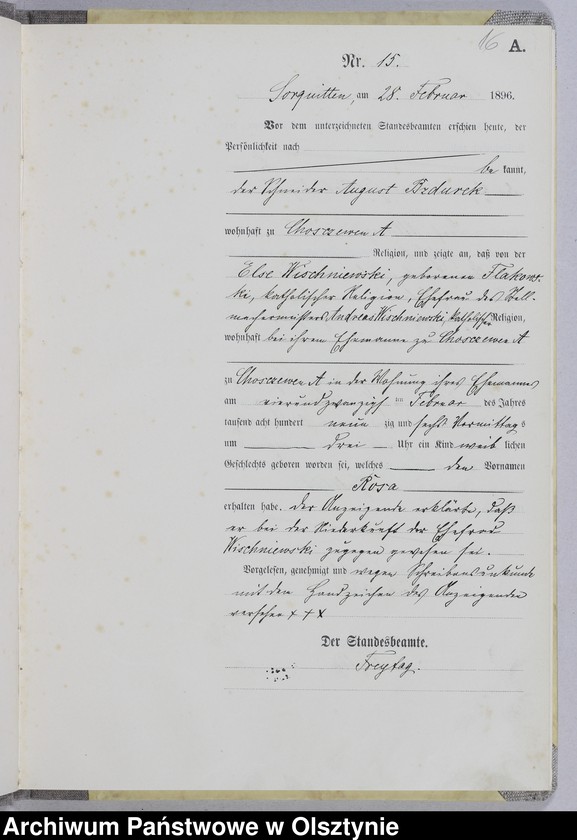 16 A.
Nr. 15.
Sorquitten, am 28. Februar 1896.
Vor dem unterzeichneten Standesbeamten erschien heute, der
Persönlichkeit nach
bekannt,
der Schneider August Bzdurek
wohnhaft zu Choszewen A
Religion, und zeigte an, daß von der
Else Wischniewski, geborenen Flakows-
ki, katholischer Religion, Ehefrau des Stell-
machermeisters Andreas Wischniewski, katholischer Religion,
wohnhaft bei ihrem Ehemanne zu Choszewen A
zu Choszewen A in der Wohnung ihres Ehemannes
am vierundzwanzigsten Februar des Jahres
tausend acht hundert neunzig und sechs Vormittags
um drei Uhr ein Kind weiblichen
Geschlechts geboren worden sei, welches den Vornamen
Rosa
erhalten habe. Der Anzeigende erklärte, daß
er bei der Niederkunft der Ehefrau
Wischniewski zugegen gewesen sei.
Vorgelesen, genehmigt und wegen Schreibensunkunde
mit den Handzeichen des Anzeigenden
versehen + + +
Der Standesbeamte.
Freytag.
Archiwum Państwowe w Olsztynie